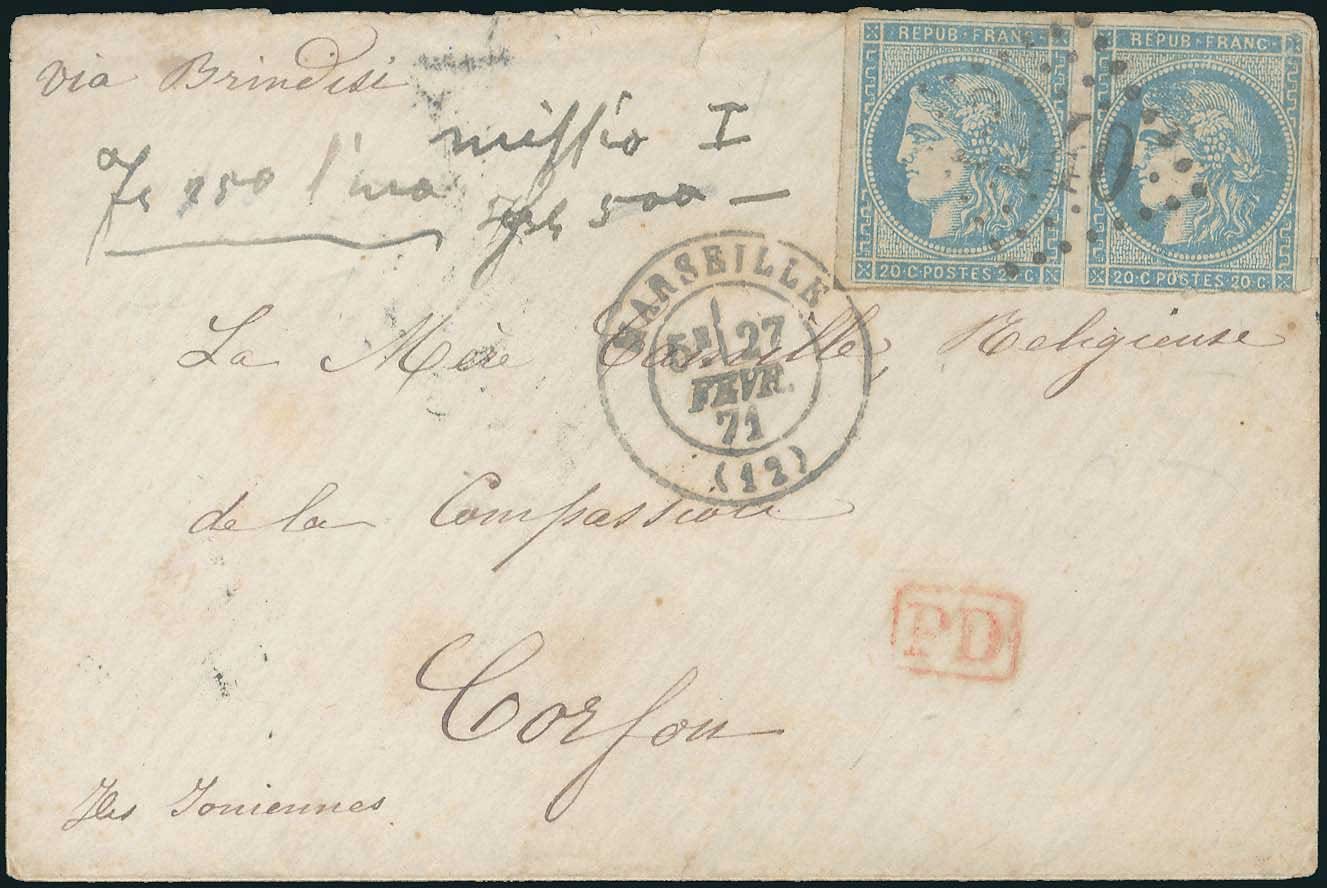 via Brindisi
REPUB·FRANC
REPUB·FRANC
missio I
250 l'una
500 —
20·C·POSTES·20·C
20·C·POSTES·20·C
MARSEILLE
5E 27
FEVR.
71
(12)
La Mère Camille, Religieuse
de la Compassion
PD
Corfou
Iles Ioniennes